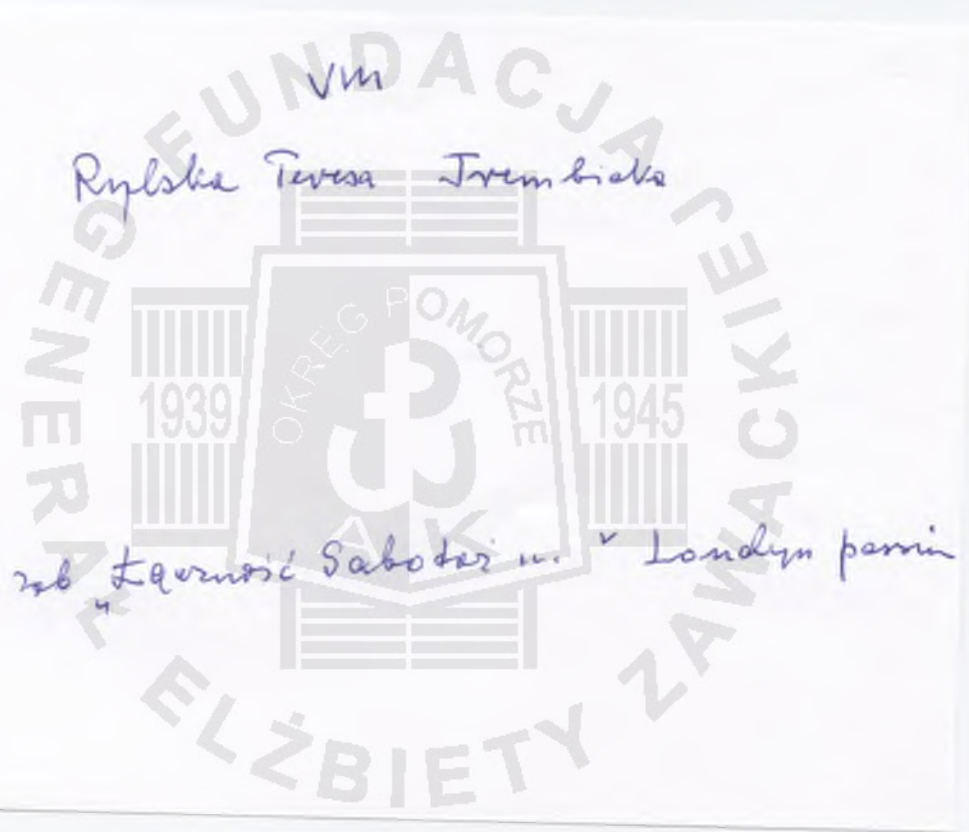 VM
Rylska Teresa Trembicka
zob „Łączność Sabotaż ... " Londyn passim
FUNDACJA
GENERAŁ ELŻBIETY ZAWACKIEJ
OKRĘG POMORZE
1939 1945
AK